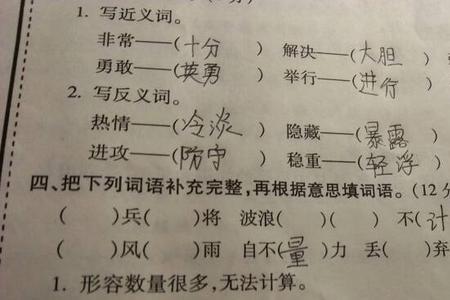 1. 写近义词。
非常——(十分) 解决——(大胆)
勇敢——(英勇) 举行——(进行)
2. 写反义词。
热情——(冷淡) 隐藏——(暴露)
进攻——(防守) 稳重——(轻浮)
四、把下列词语补充完整,再根据意思填词语。(12分
( )兵( )将 波浪( )( ) 不(计
( )风( )雨 自不(量)力 丢( )弃
1. 形容数量很多,无法计算。